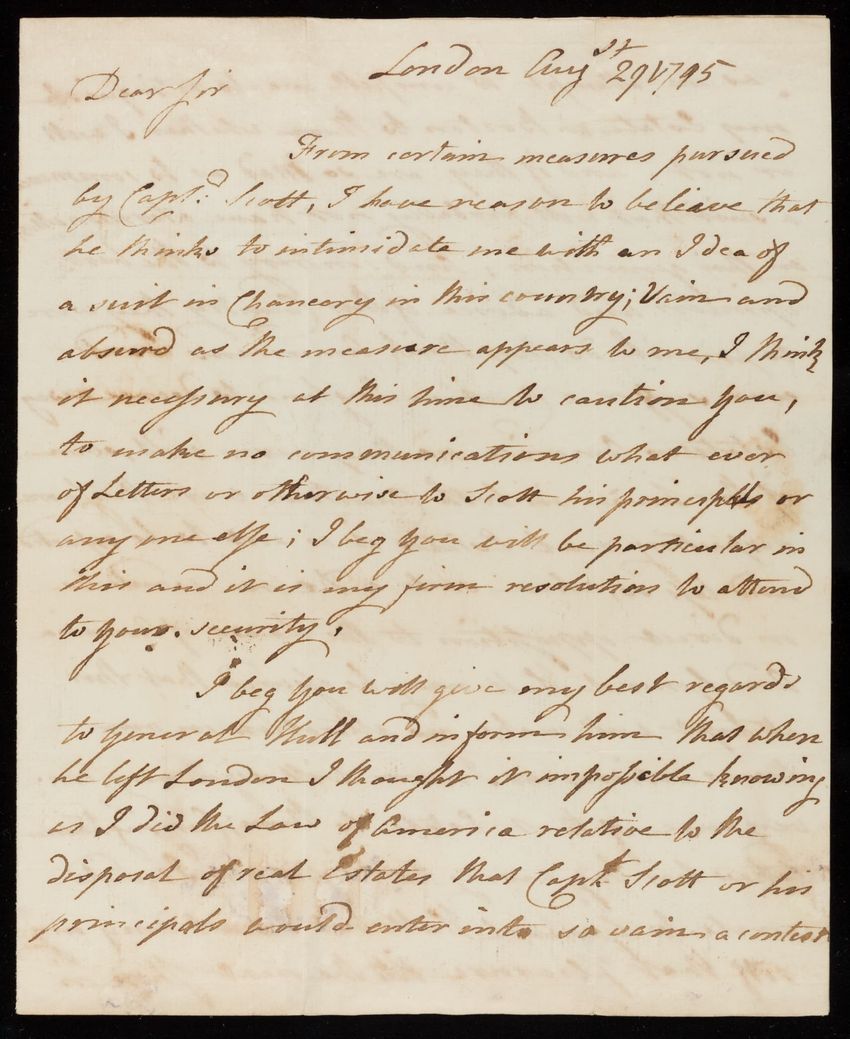 London Augst 29 1795
Dear Sir
From certain measures pursued
by Capt. Scott, I have reason to beleave that
he thinks to intimidate me with an Idea of
a suit in Chancery in this country; Vain and
absurd as the measure appears to me, I think
it necessary at this time to caution you,
to make no communications what ever
of Letters or otherwise to Scott his principals or
any one else; I beg you will be particular in
this and it is my firm resolution to attend
to your security.
I beg you will give my best regards
to General Hull and inform him that when
he left London I thought it impossible knowing
as I did the Law of America relative to the
disposal of real Estates that Capt Scott or his
principals would enter into so vain a contest